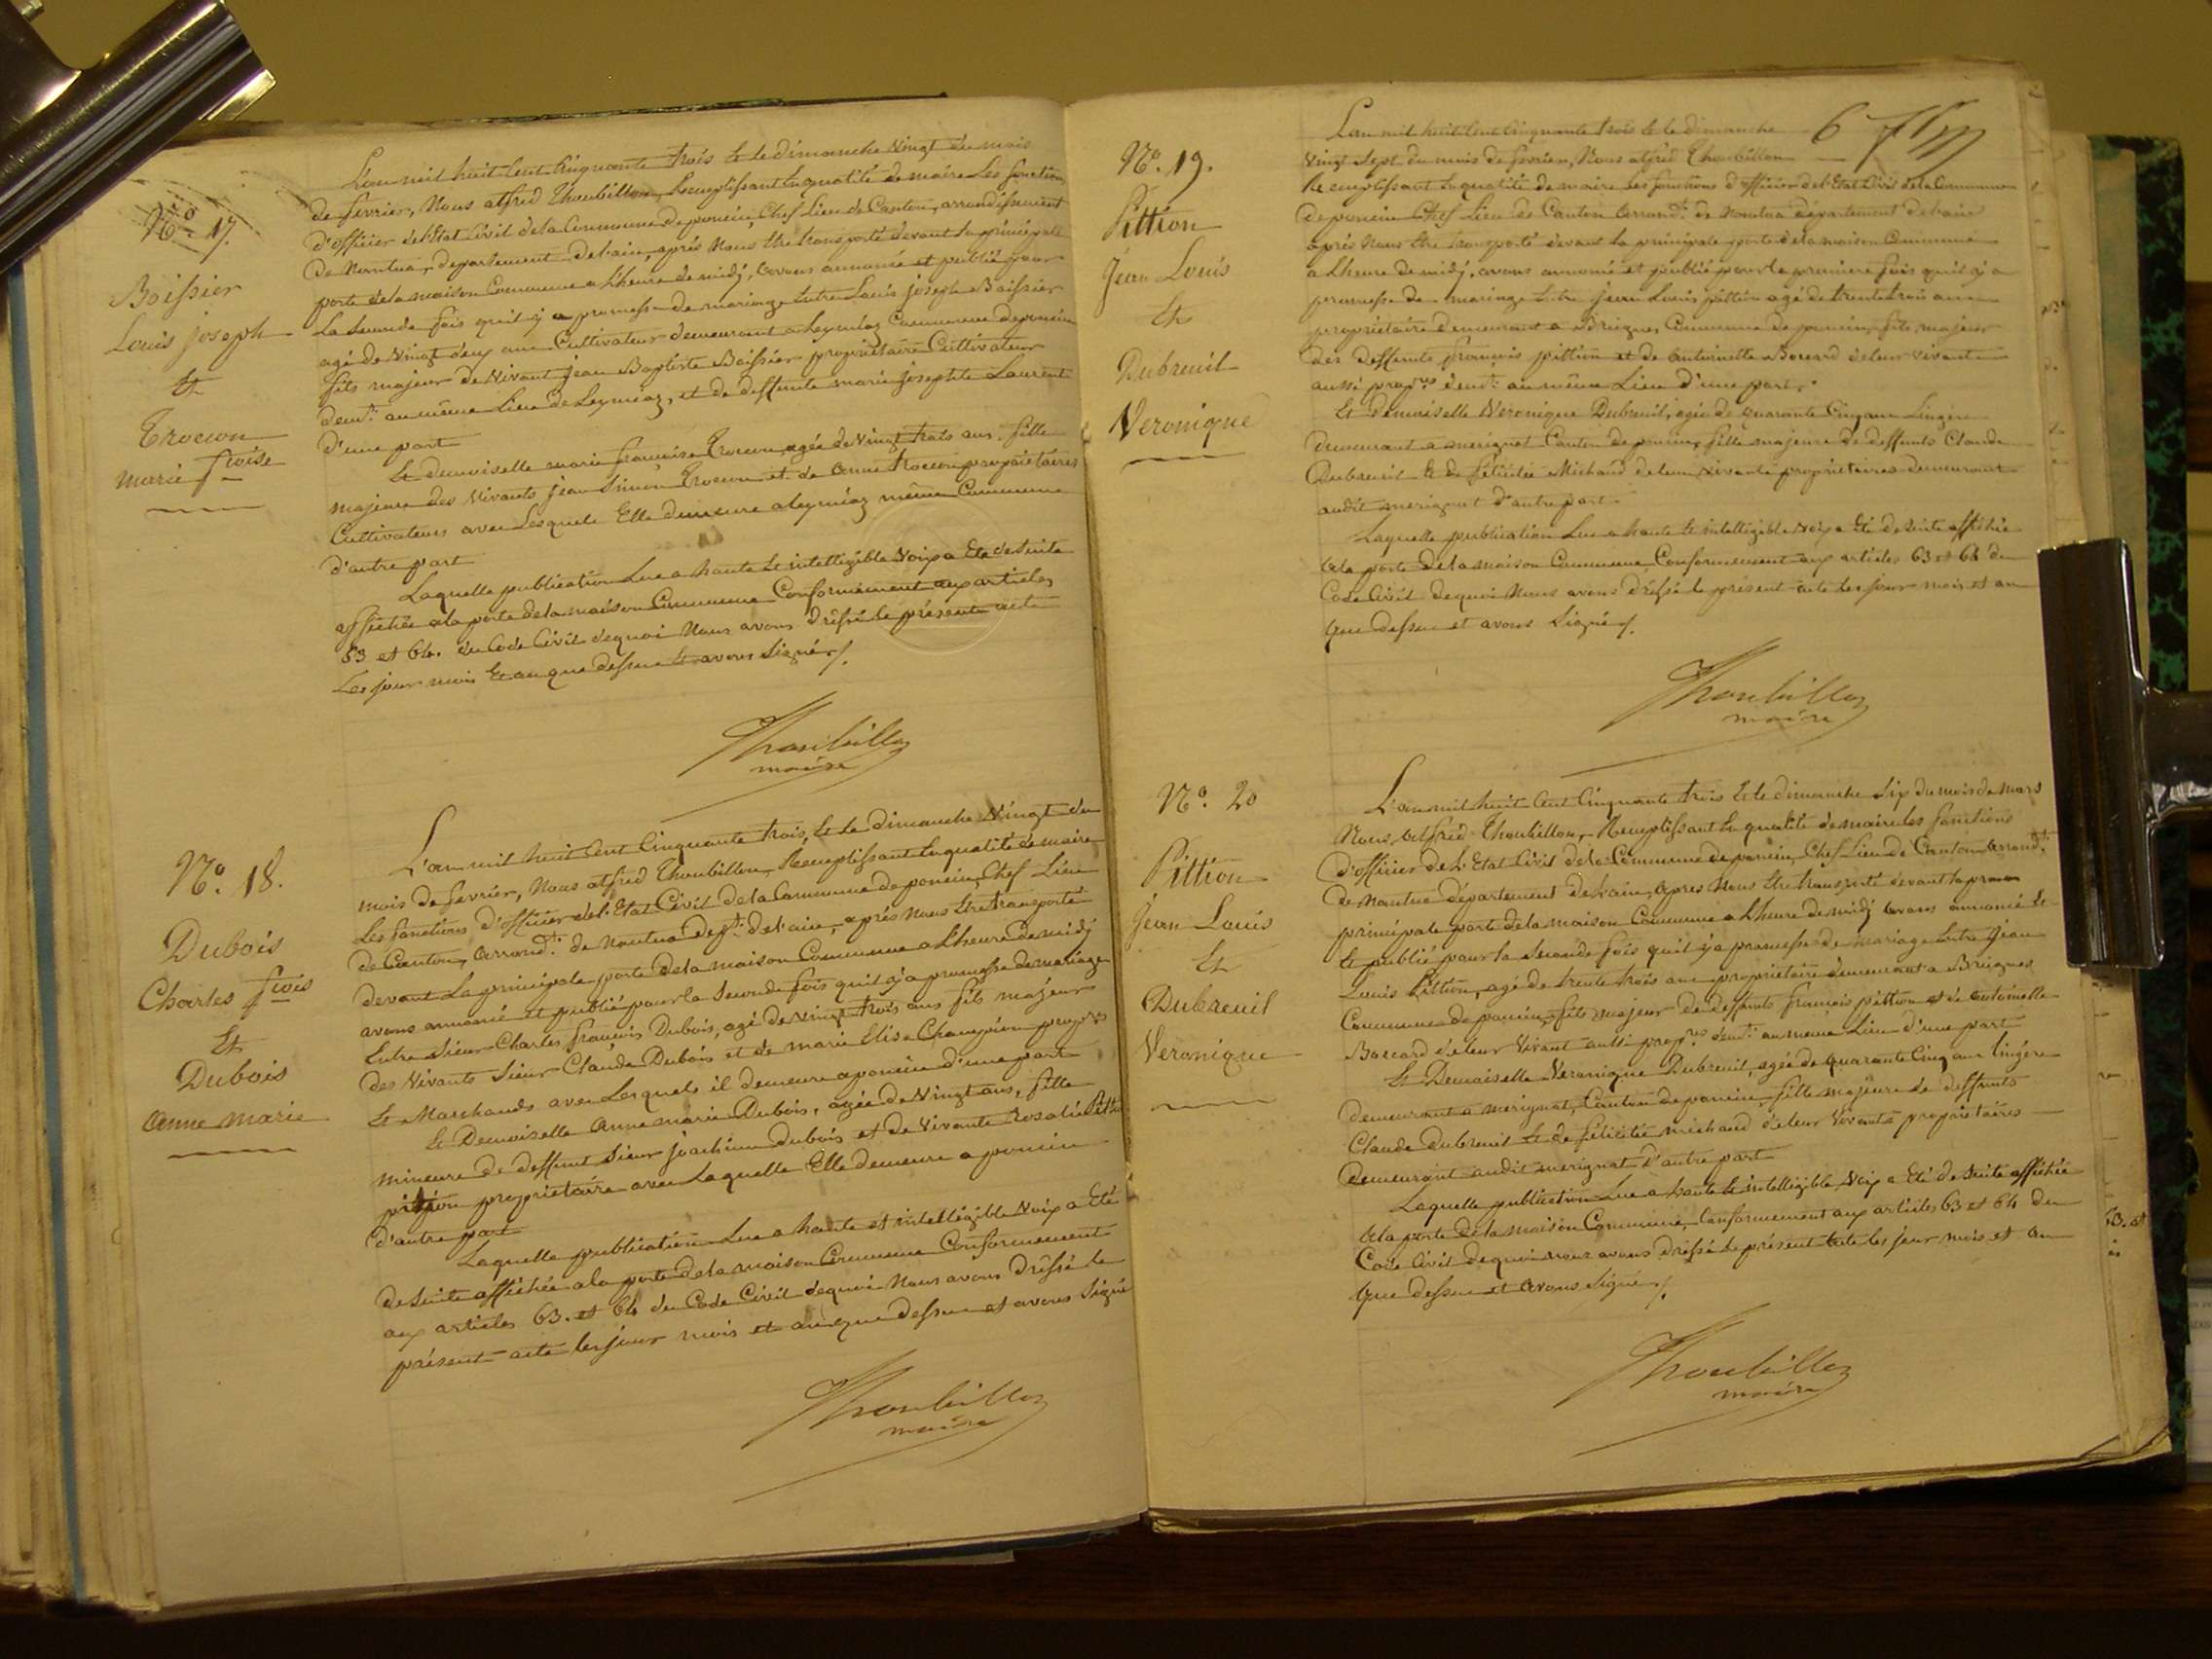 No. 17.
Boissier
Louis joseph
Et
Trocon
marie fçoise
L'an mil huit Cent Cinquante trois Et le dimanche Vingt du mois
de fevrier, Nous alfred Thoubillon, Remplissant En qualité de maire Les fonctions
d'officier de l'Etat Civil de la Commune de poncin, Chef Lieu de Canton, arrondissement
de Nantua, departement de l'ain, aprés Nous Etre transporté devant la principale
porte de la maison Commune a L'heure de midj, avons annoncé et publié pour
La Seconde fois qu'il ÿ a promesse de mariage Entre Louis joseph Boissier
agé de Vingt deux ans Cultivateur demeurant a Leymiaz Commune de poncin
fils majeur de Vivant jean Baptiste Boissier propriétaire Cultivateur
demt. au même Lieu de Leymiaz, et de deffunte marie josephte Laurent
d'une part
Et demoiselle marie francoise Trocon, agée de Vingt trois ans. fille
majeure des Vivants jean Simon Trocon et de anne trocon propriétaires
Cultivateurs avec Lesquels Elle demeure a leymiaz même Commune
d'autre part
Laquelle publication Lue a haute Et intelligible Voix a Eté de Suite
affichée a la porte de la maison Commune Conformément aux articles
63 et 64. du Code Civil de quoi Nous avons dréssé le présent acte
Les jour mois Et an que dessus Et avons Signé ./.
Thoubillon
maire
No. 18.
Dubois
Charles fçois
Et
Dubois
anne marie
L'an mil huit Cent Cinquante trois, Et Le dimanche Vingt du
mois de fevrier, Nous alfred Thoubillon, Remplissant En qualité de maire
Les fonctions d'officier de l'Etat Civil de la Commune de poncin, Chef Lieu
de Canton, arrondt. de Nantua dept. de l'ain, aprés Nous Etre transporté
devant La principale porte de la maison Commune a L'heure de midj
avons annoncé et publié pour la Seconde fois qu'il ÿ a promesse de mariage
Entre Sieur Charles francois Dubois, agé de Vingt trois ans fils majeur
des Vivants Sieur Claude Dubois et de marie Elise Champion propres
Et Marchands avec Lesquels il demeure a poncin d'une part
Et Demoiselle anne marie Dubois, agée de Vingt ans, fille
mineure de deffunt Sieur joachim Dubois et de Vivante Rosalie
pittion propriétaire avec Laquelle Elle demeure a poncin
d'autre part
Laquelle publication Lue a haute et intelligible Voix a Eté
de Suite affichée a la porte de la maison Commune Conformement
aux articles 63. et 64 du Code Civil de quoi Nous avons Dréssé le
présent acte les jour mois et an que dessus et avons Signé
Thoubillon
maire
6
No. 19.
Pittion
Jean Louis
Et
Dubreuil
Veronique
L'an mil huit Cent Cinquante trois Et le dimanche
Vingt Sept du mois de fevrier, Nous alfred Thoubillon
Remplissant En qualité de maire les fonctions d'officier de l'Etat Civil de la Commune
de poncin Chef Lieu de Canton arrondt. de Nantua département de l'ain
aprés Nous Etre transporté devant la principale porte de la maison Commune
a L'heure de midj, avons annoncé et publié pour la premiere fois qu'il ÿ a
promesse de mariage Entre jean Louis pittion agé de trente trois ans
propriétaire demeurant a Breignes Commune de poncin, fils majeur
des deffunts francois pittion et de antoinette Bocard de leur vivant
aussi propres demt. au même Lieu d'une part.
Et demoiselle Veronique Dubreuil, agée de quarante Cinq ans Lingère
demeurant a merignat Canton de poncin, fille majeure de deffunts Claude
Dubreuil Et de félicitée Michaud de leur vivants propriétaires demeurant
audit merignat d'autre part.
Laquelle publication Lue a haute Et intelligible Voix a Eté de Suite affichée
a la porte de la maison Commune Conformement aux articles 63 et 64 du
Code Civil de quoi Nous avons dréssé le présent acte les jour mois et an
que dessus et avons Signé ./.
Thoubillon
maire
No. 20
Pittion
Jean Louis
Et
Dubreuil
Veronique
L'an mil huit Cent Cinquante trois Et le dimanche Six du mois de Mars
Nous, alfred Thoubillon, Remplissant En qualité de maire les fonctions
d'officier de L'Etat Civil de la Commune de poncin, Chef Lieu de Canton arrondt.
de Nantua département de l'ain, aprés Nous Etre transporté devant la
principale porte de la maison Commune a L'heure de midj avons annoncé Et
Et publié pour la Seconde fois qu'il ÿ a promesse de mariage Entre jean
Louis Pittion, agé de trente trois ans propriétaire demeurant a Breignes
Commune de poncin, fils majeur de deffunts francois pittion et de antoinette
Bocard de leur Vivant aussi propres demt. au même Lieu d'une part
Et Demoiselle Veronique Dubreuil, agée de quarante Cinq ans lingère
demeurant a merignat, Canton de poncin, fille majeure de deffunts
Claude Dubreuil Et de félicitée michaud de leur Vivants propriétaires
demeurant audit merignat d'autre part
Laquelle publication Lue a haute Et intelligible Voix a Eté de Suite affichée
a la porte de la maison Commune, Conformement aux articles 63 et 64 du
Code Civil de quoi nous avons dréssé le présent acte les jour mois et an
que dessus et avons Signé ./.
Thoubillon
maire